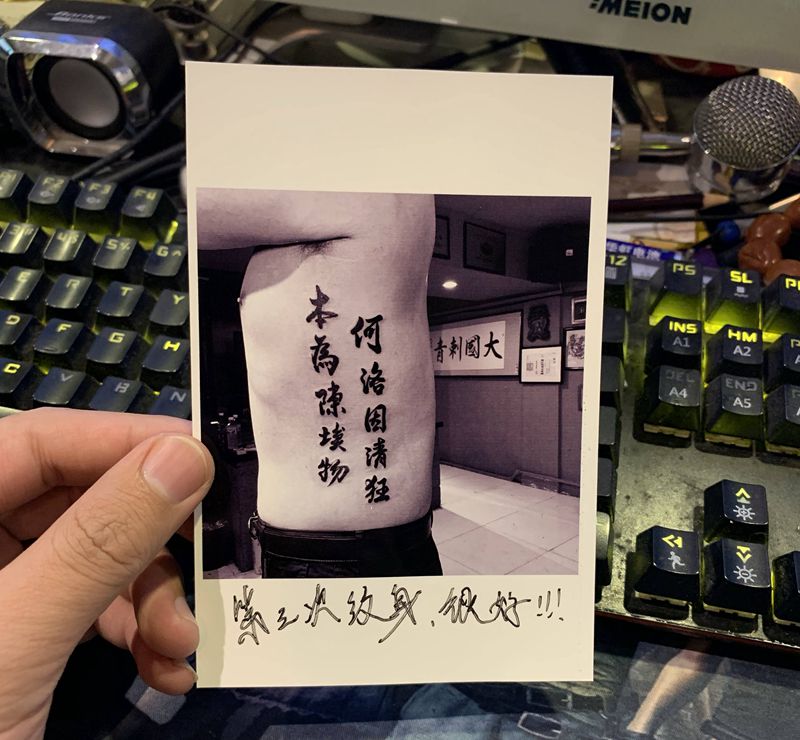 MEION
何洛因清狂
本為陳埃物
大國刺青
第三次纹身、很好!!!
F3 F4
E R T Y
D F G H
C V B N
12 PS SL
INS A1 HM A2
DEL A4 END A5